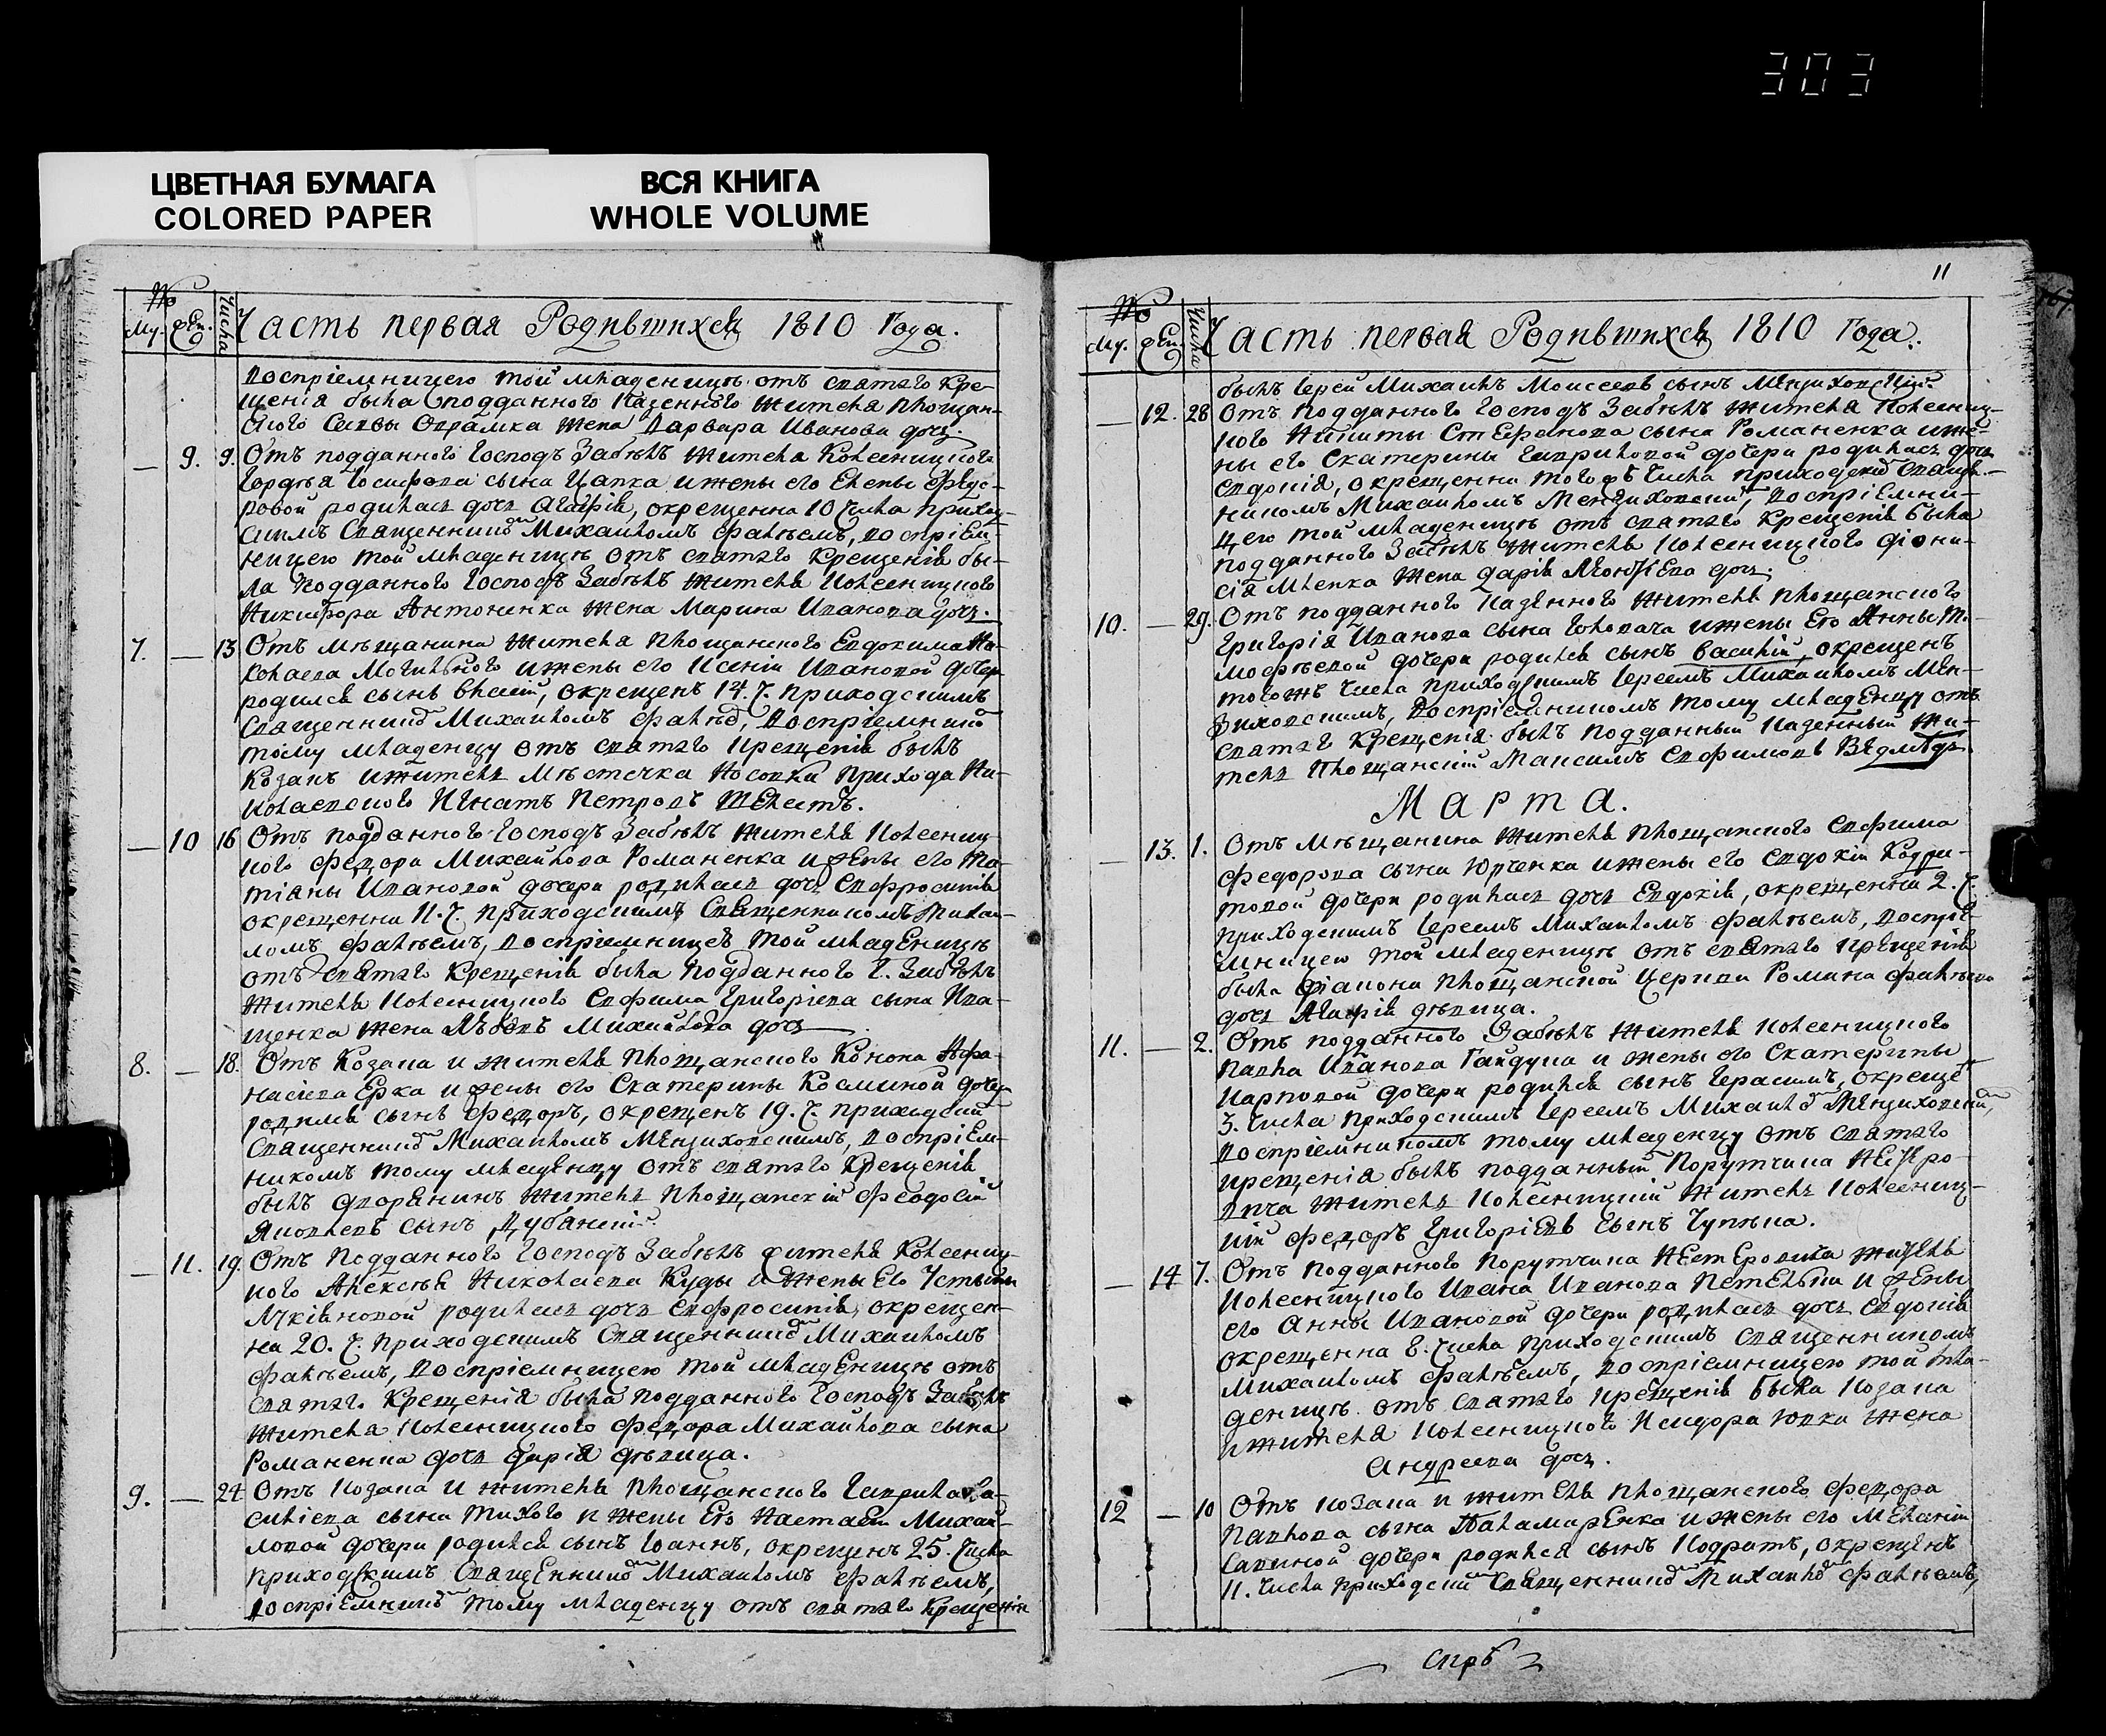 303
ЦВЕТНАЯ БУМАГА
COLORED PAPER
ВСЯ КНИГА
WHOLE VOLUME
№
Му. жен. Числа Часть первая Родившихся 1810 Года.
воспріемницею той младеницѣ отъ святаго Кре-
щенія была подданного Казенного жителя площан-
ского Саввы жена Варвара Иванова дочь.
— 9. 9. Отъ подданного Господъ Забѣлъ жителя Колесницкого
Гордѣя Іосифова сына Цапка и жены его Елены Федо-
ровой родилась дочь Агафія, окрещенна 10 числа приход-
скимъ Священникомъ Михаиломъ Фалѣемъ, воспріем-
ницею той младеницѣ отъ святаго Крещенія бы-
ла подданного Господъ Забѣлъ жителя Колесницкого
Никифора Антоненка жена Марина Иванова дочь.
7. — 13 Отъ мѣщанина жителя площанского Евдокима Ни-
колаева Могильного и жены его Ксеніи Ивановой дочери
родился сынъ Власій, окрещенъ 14. ч. приходскимъ
Священникомъ Михаиломъ Фалѣемъ, воспріемникомъ
тому младенцу отъ святаго крещенія былъ
Козакъ и житель мѣстечка Носовки прихода Ни-
колаевского Игнатъ Петровъ
— 10 16 Отъ подданного Господъ Забѣлъ жителя Колесниц-
кого Федора Михайлова Романенка и жены его Та-
тіаны Ивановой дочери родилась дочь Евфросинія
окрещенна 17. ч. приходскимъ Священникомъ Михаи-
ломъ Фалѣемъ, воспріемницею той младеницѣ
отъ святаго Крещенія была подданного Г. Забѣлъ
жителя Колесницкого Евфима Григоріева сына Ива-
щенка жена Михайлова дочь
8. — 18. Отъ Козака и жителя площанского Конона Афа-
насіева Ерка и жены его Екатерины Косминой дочери
родился сынъ Федоръ, окрещенъ 19. ч. приходскимъ
Священникомъ Михаиломъ Мензиховскимъ, воспріем-
никомъ тому младенцу отъ святаго Крещенія
былъ дворянинъ житель площанскій Феодосій
Яковлевъ сынъ Дубанскій
— 11. 19. Отъ подданного Господъ Забѣлъ жителя Колесниц-
кого Алексѣя Николаева Куды и жены его Устиньи
Лукіяновой родилась дочь Евфросинія, окрещен-
на 20. ч. приходскимъ Священникомъ Михаиломъ
Фалѣемъ, воспріемницею той младеницѣ отъ
святаго Крещенія была подданного Господъ Забѣлъ
жителя Колесницкого Федора Михайлова сына
Романенка дочь Дарія дѣвица.
9. — 24 Отъ Козака и жителя площанского Гавріила Ва-
силіева сына Тихого и жены его Настасіи Михай-
ловой дочери родился сынъ Іоаннъ, окрещенъ 25. числа
приходскимъ Священникомъ Михаиломъ Фалѣемъ,
воспріемникомъ тому младенцу отъ святаго Крещенія
11
№
Му. жен. Числа Часть первая Родившихся 1810 Года.
былъ Іерей Михаилъ Моисеевъ сынъ Мензиховскій
— 12. 28 Отъ подданного Господъ Забѣлъ жителя Колесниц-
кого Никиты Стефанова сына Романенка и же-
ны его Екатерины Гавриловой дочери родилась дочь
Евдокія, окрещенна того жъ числа приходскимъ Священ-
никомъ Михаиломъ Мензиховскимъ, воспріемни-
цею той младеницѣ отъ святаго Крещенія была
подданного Забѣлъ жителя Колесницкого Діони-
сія жена Дарія дочь.
10. — 29. Отъ подданного Казенного жителя площанского
Григорія Иванова сына Головача и жены его Анны Ти-
мофѣевой дочери родился сынъ Василій, окрещенъ
тогожъ числа приходскимъ Іереемъ Михаиломъ Мен-
зиховскимъ, воспріемникомъ тому младенцу отъ
святаго Крещенія былъ подданный Казенный жи-
тель площанскій Максимъ Евфимовъ Ведмѣдь.
Марта.
— 13. 1. Отъ мѣщанина жителя площанского Евфима
Федорова сына Юрченка и жены его Евдокіи Кодра-
товой дочери родилась дочь Евдокія, окрещенна 2. ч.
приходскимъ Іереемъ Михаиломъ Фалѣемъ, воспріе-
мницею той младеницѣ отъ святаго крещенія
была діакона площанской церкви Романа Фалѣева
дочь Агафія дѣвица.
11. — 2. Отъ подданного Забѣлъ жителя Колесницкого
Павла Иванова Гайдука и жены его Екатерины
Карповой дочери родился сынъ Герасимъ, окрещенъ
3. числа приходскимъ Іереемъ Михаиломъ Мензиховскимъ,
воспріемникомъ тому младенцу отъ святаго
крещенія былъ подданный Порутчика Нестеро-
вича житель Колесницкій житель Колесниц-
кій Федоръ Григоріевъ сынъ Чупина.
— 14 7. Отъ подданного Порутчика Нестеровича жителя
Колесницкого Ивана Иванова Петельки и жены
его Анны Ивановой дочери родилась дочь Евдокія
окрещенна 8. числа приходскимъ Священникомъ
Михаиломъ Фалѣемъ, воспріемницею той мла-
деницѣ отъ святаго крещенія была Козака
и жителя Колесницкого Исидора Юрка жена
Андреева дочь.
12 — 10 Отъ Козака и жителя площанского Федора
Павлова сына Паламаренка и жены его Меланіи
Савиной дочери родился сынъ Кодратъ, окрещенъ
11. числа приходскимъ Священникомъ Михаиломъ Фалѣемъ,